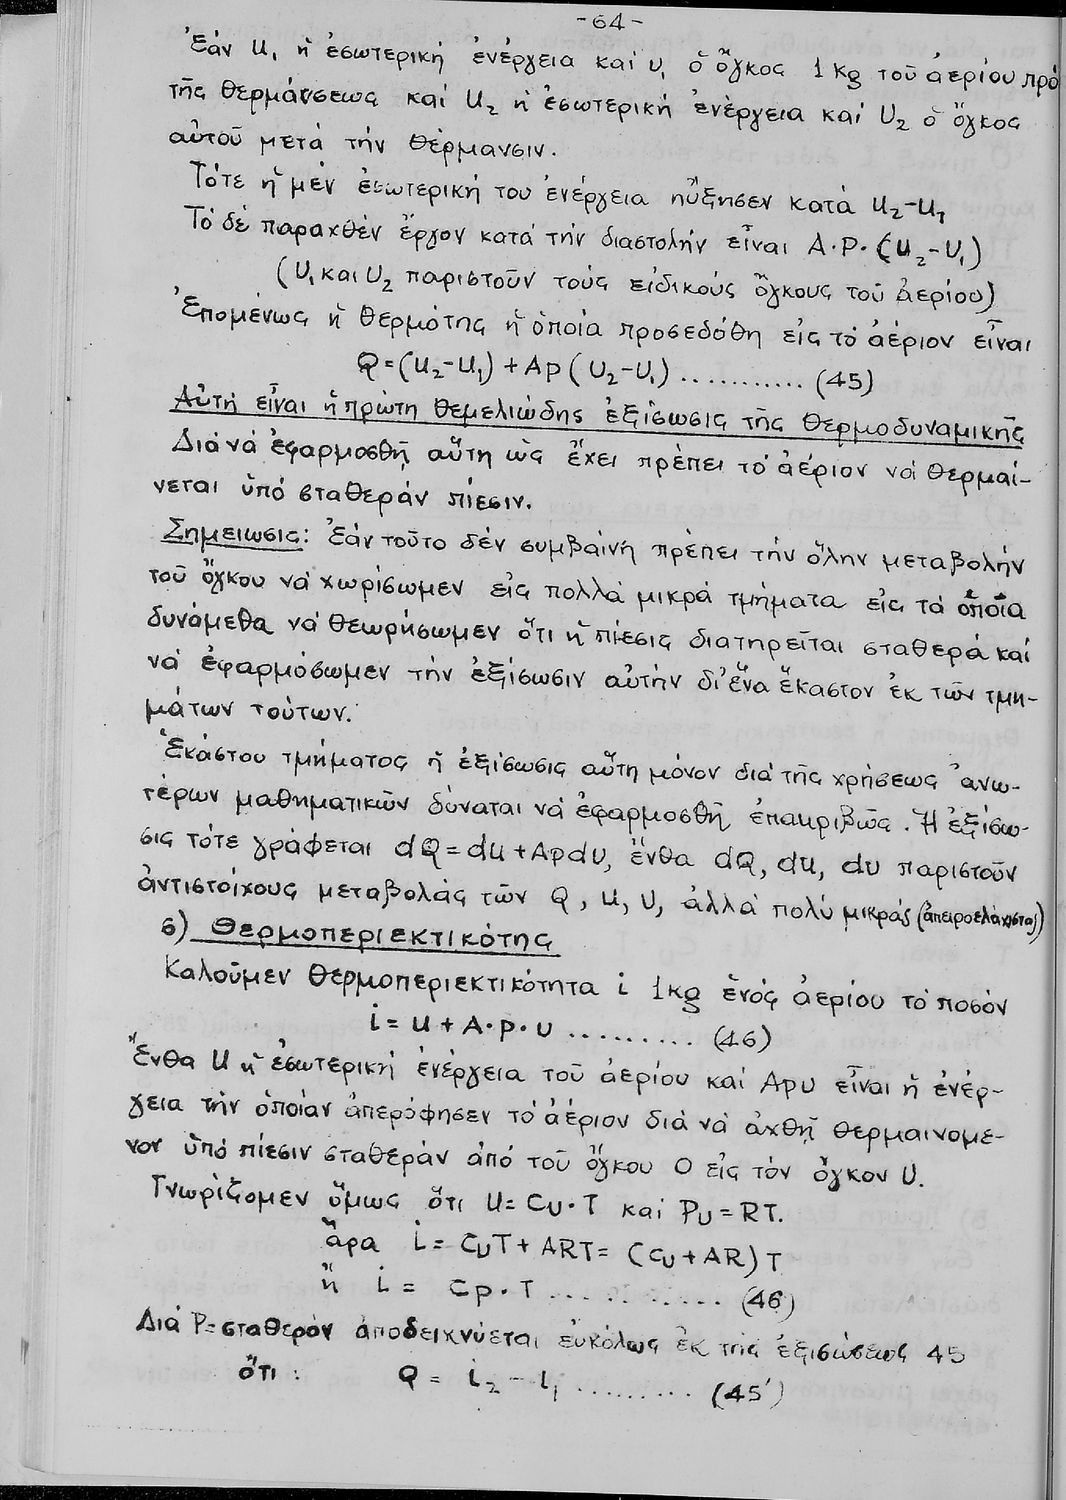 -64-
Ἐάν U₁ ἡ ἐσωτερική ἐνέργεια καί υ₁ ὁ ὄγκος 1 kg τοῦ ἀερίου πρό
τῆς θερμάνσεως καί U₂ ἡ ἐσωτερική ἐνέργεια καί υ₂ ὁ ὄγκος
αὐτοῦ μετά τήν θέρμανσιν.
Τότε ἡ μέν ἐσωτερική του ἐνέργεια ηὔξησεν κατά U₂-U₁
Τό δέ παραχθέν ἔργον κατά τήν διαστολήν εἶναι A·P·(υ₂-υ₁)
(υ₁ και υ₂ παριστοῦν τούς εἰδικούς ὄγκους τοῦ ἀερίου)
Ἑπομένως ἡ θερμότης ἡ ὁποία προσεδόθη εἰς τό ἀέριον εἶναι
Q=(U₂-U₁)+Ap(υ₂-υ₁)........... (45)
Αὐτή εἶναι ἡ πρώτη θεμελιώδης ἐξίσωσις τῆς θερμοδυναμικῆς
Διά νά ἐφαρμοσθῇ αὕτη ὡς ἔχει πρέπει τό ἀέριον νά θερμαί-
νεται ὑπό σταθεράν πίεσιν.
Σημείωσις: Ἐάν τοῦτο δέν συμβαίνη πρέπει τήν ὅλην μεταβολήν
τοῦ ὄγκου νά χωρίσωμεν εἰς πολλά μικρά τμήματα εἰς τά ὁποῖα
δυνάμεθα νά θεωρήσωμεν ὅτι ἡ πίεσις διατηρεῖται σταθερά καί
νά ἐφαρμόσωμεν τήν ἐξίσωσιν αὐτήν δι' ἕνα ἕκαστον ἐκ τῶν τμη-
μάτων τούτων.
Ἑκάστου τμήματος ἡ ἐξίσωσις αὕτη μόνον διά τῆς χρήσεως ἀνω-
τέρων μαθηματικῶν δύναται νά ἐφαρμοσθῇ ἐπακριβῶς. Ἡ ἐξίσω-
σις τότε γράφεται dQ=dU+Apdυ, ἔνθα dQ, dU, dυ παριστοῦν
ἀντιστοίχους μεταβολάς τῶν Q, U, υ, ἀλλά πολύ μικράς (ἀπειροελάχιστας)
6) Θερμοπεριεκτικότης
Καλοῦμεν θερμοπεριεκτικότητα i 1kg ἑνός ἀερίου τό ποσόν
i = U + A·p·υ ......... (46)
Ἔνθα U ἡ ἐσωτερική ἐνέργεια τοῦ ἀερίου καί Apυ εἶναι ἡ ἐνέρ-
γεια τήν ὁποίαν ἀπερόφησεν τό ἀέριον διά νά ἀχθῇ θερμαινομε-
νον ὑπό πίεσιν σταθεράν ἀπό τοῦ ὄγκου 0 εἰς τόν ὄγκον υ.
Γνωρίζομεν ὅμως ὅτι U=Cυ·T καί Pυ=RT.
ἄρα i = CυT+ART=(Cυ+AR)T
ἤ i = Cp·T ........... (46)
Διά P=σταθερόν ἀποδεικνύεται εὐκόλως ἐκ τῆς ἐξισώσεως 45
ὅτι: Q = i₂-i₁ ......... (45')